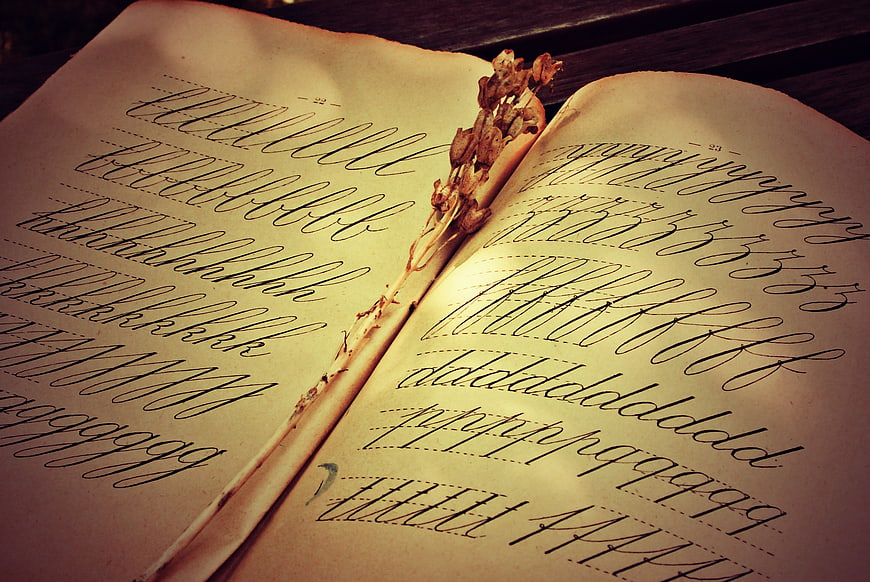 — 22 —
llllllllllll
bbbbbbbbbbb
hhhhhhhhhhh
kkkkkkkkkk
jjjjjjjjjj
ggggggggg
— 23 —
yyyyyyyyyyyy
zzzzzzzzzz
ffffffffffff
ddddddddddddd
pppppp qqqqqq
tttttttt